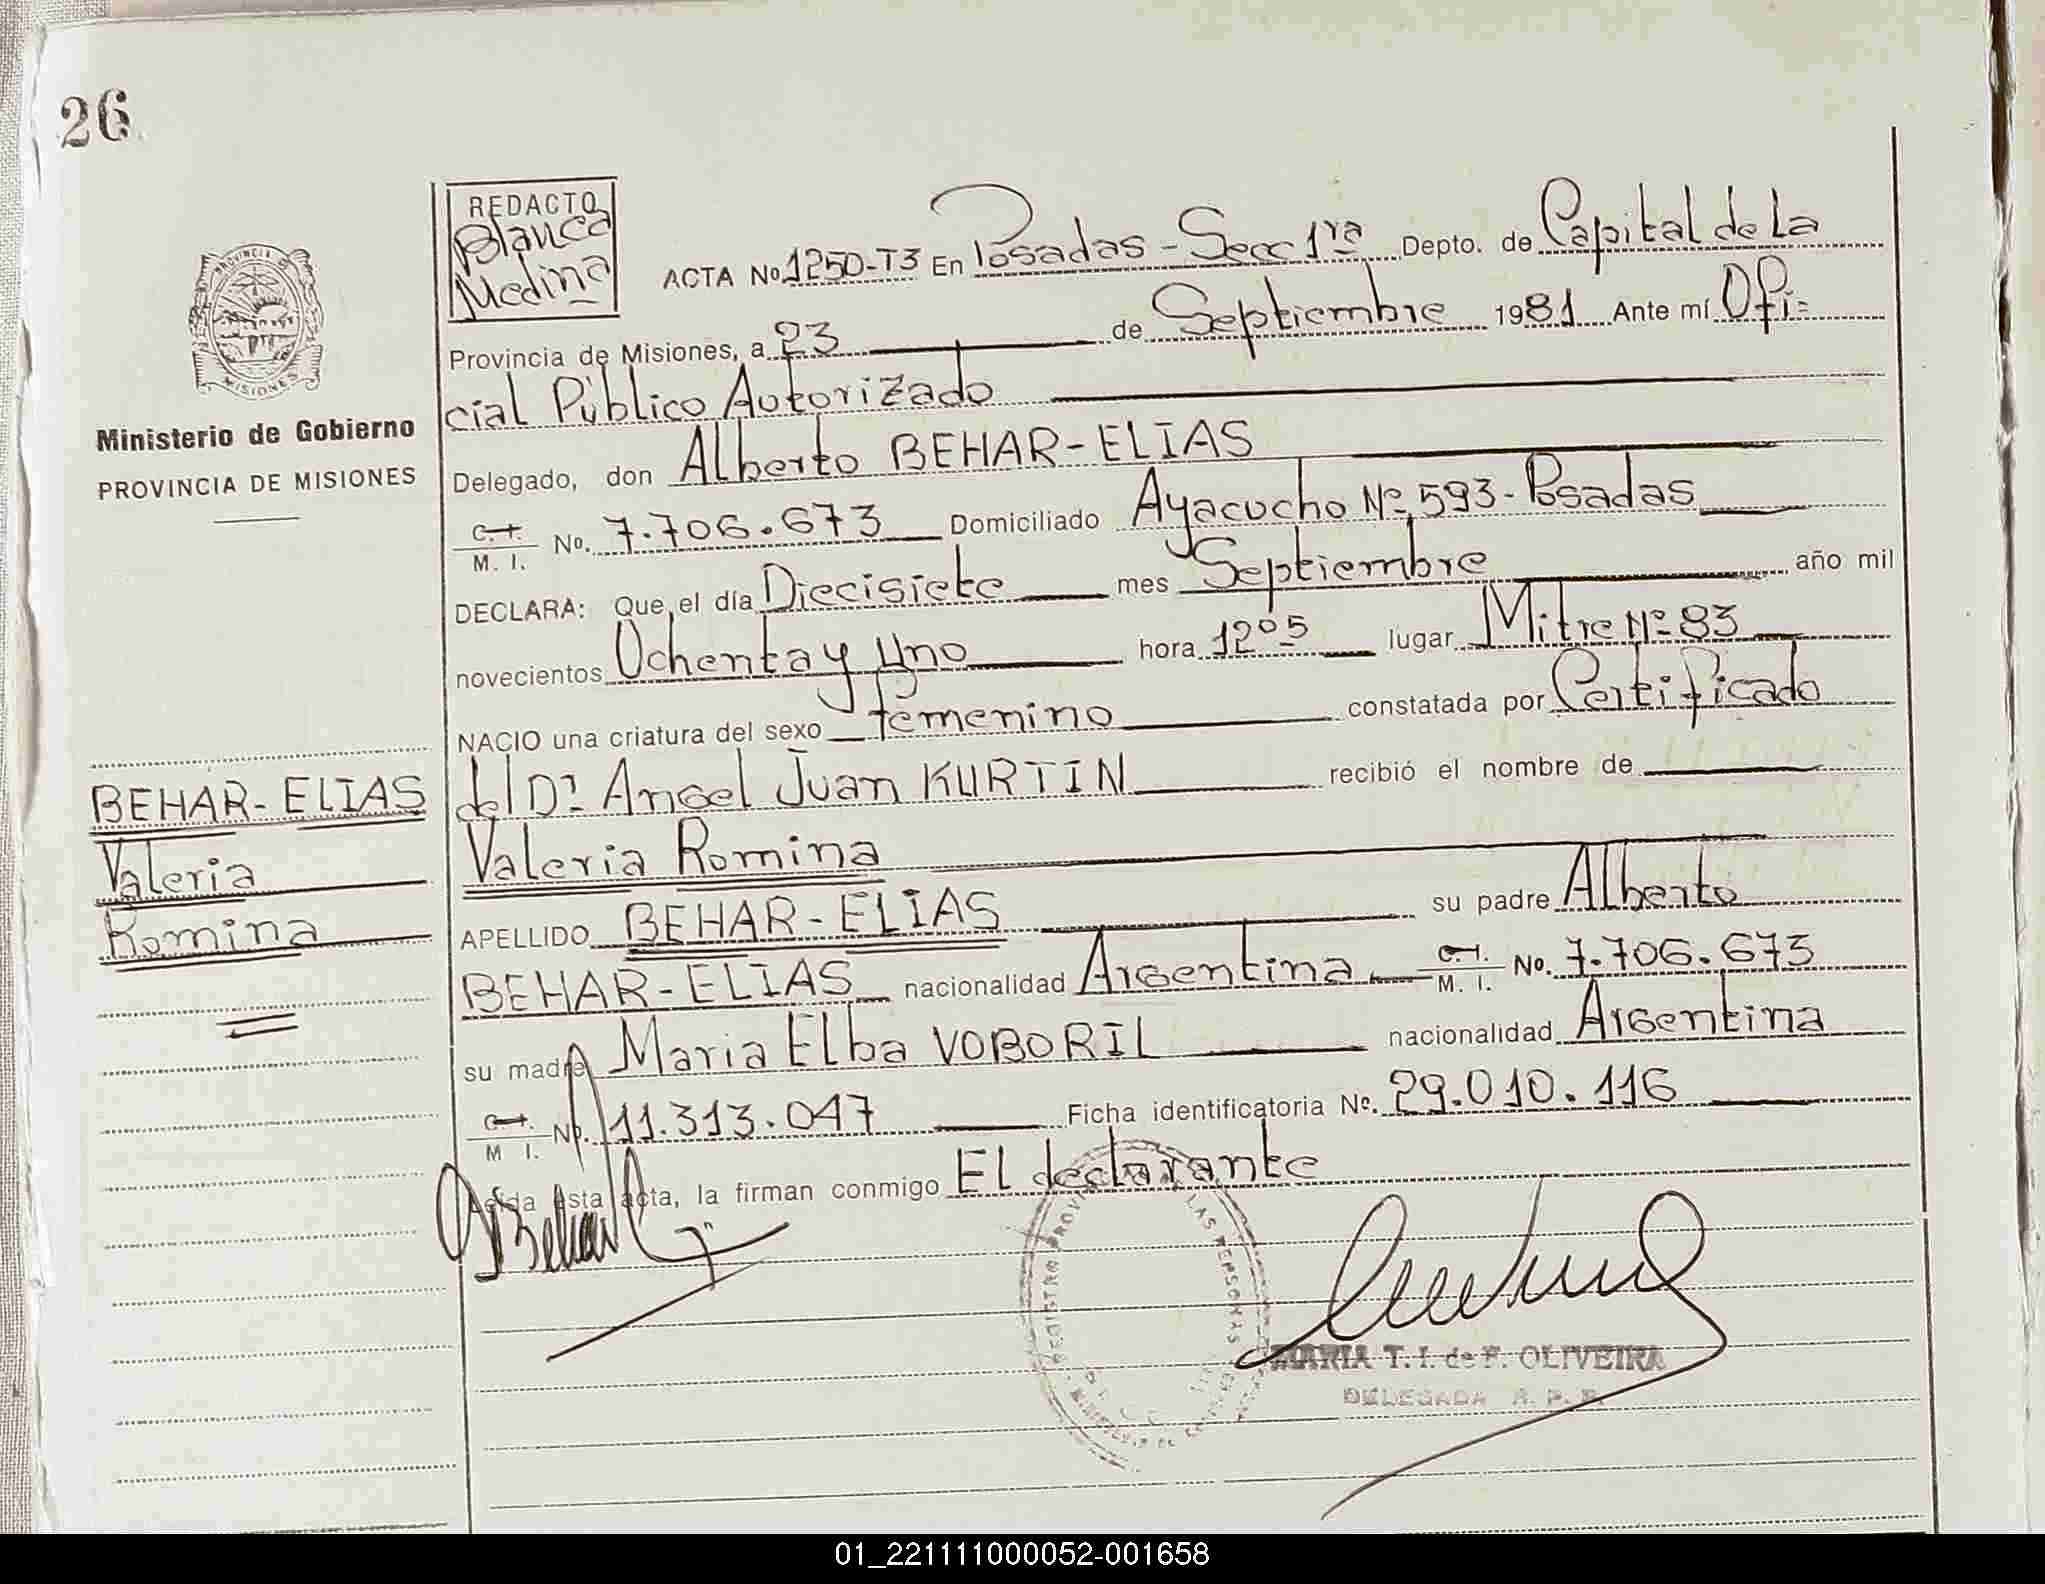 26
REDACTO
Blanca
Medina
ACTA No 1250-T3 En Posadas - Secc 1ra Depto. de Capital de La
Provincia de Misiones, a 23 de Septiembre 1981 Ante mí Ofi=
cial Público Autorizado
Delegado, don Alberto BEHAR-ELIAS
C.I. M. I. No. 7.706.673 Domiciliado Ayacucho Nº 593 - Posadas
DECLARA: Que el día Diecisiete mes Septiembre año mil
novecientos Ochenta y Uno hora 12 05 lugar Mitre Nº 83
NACIO una criatura del sexo femenino constatada por Certificado
del Dr. Angel Juan KURTIN recibió el nombre de
Valeria Romina
APELLIDO BEHAR-ELIAS su padre Alberto
BEHAR-ELIAS nacionalidad Argentina C.I. M. I. No. 7.706.673
su madre Maria Elba VOBORIL nacionalidad Argentina
C.I. M I. No. 11.313.047 Ficha identificatoria Nº. 29.010.116
Leída esta acta, la firman conmigo El declarante
MARIA T. I. de F. OLIVEIRA
DELEGADA R. P. P.
REGISTRO PROV LAS PERSONAS
PROVINCIA DE MISIONES
Ministerio de Gobierno
PROVINCIA DE MISIONES
BEHAR-ELIAS
Valeria
Romina
01_221111000052-001658